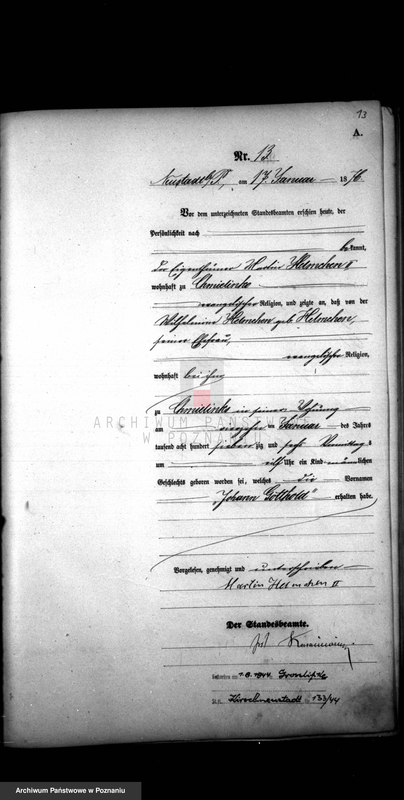 13
A.
Nr. 13.
Neustadt b/P., am 17 Januar 1876.
Vor dem unterzeichneten Standesbeamten erschien heute, der
Persönlichkeit nach
be kannt,
der Eigenthümer Martin Helmchen II
wohnhaft zu Chmielinko
evangelischer Religion, und zeigte an, daß von der
Wilhelmine Helmchen geb. Helmchen,
seiner Ehefrau,
evangelischer Religion,
wohnhaft bei ihm
zu Chmielinko in seiner Wohnung
am Januar des Jahres
tausend acht hundert sieben zig und sechs Vormittag s
um elf Uhr ein Kind männlichen
Geschlechts geboren worden sei, welches die Vornamen
„Johann Gotthold“ erhalten habe.
Vorgelesen, genehmigt und unterschrieben
Martin Helmchen II
Der Standesbeamte.
Gestorben am 1.8.1944
St. A. Kirschneustadt Nr. 133/44
ARCHIWUM PAŃSTWOWE
W POZNANIU
Archiwum Państwowe w Poznaniu